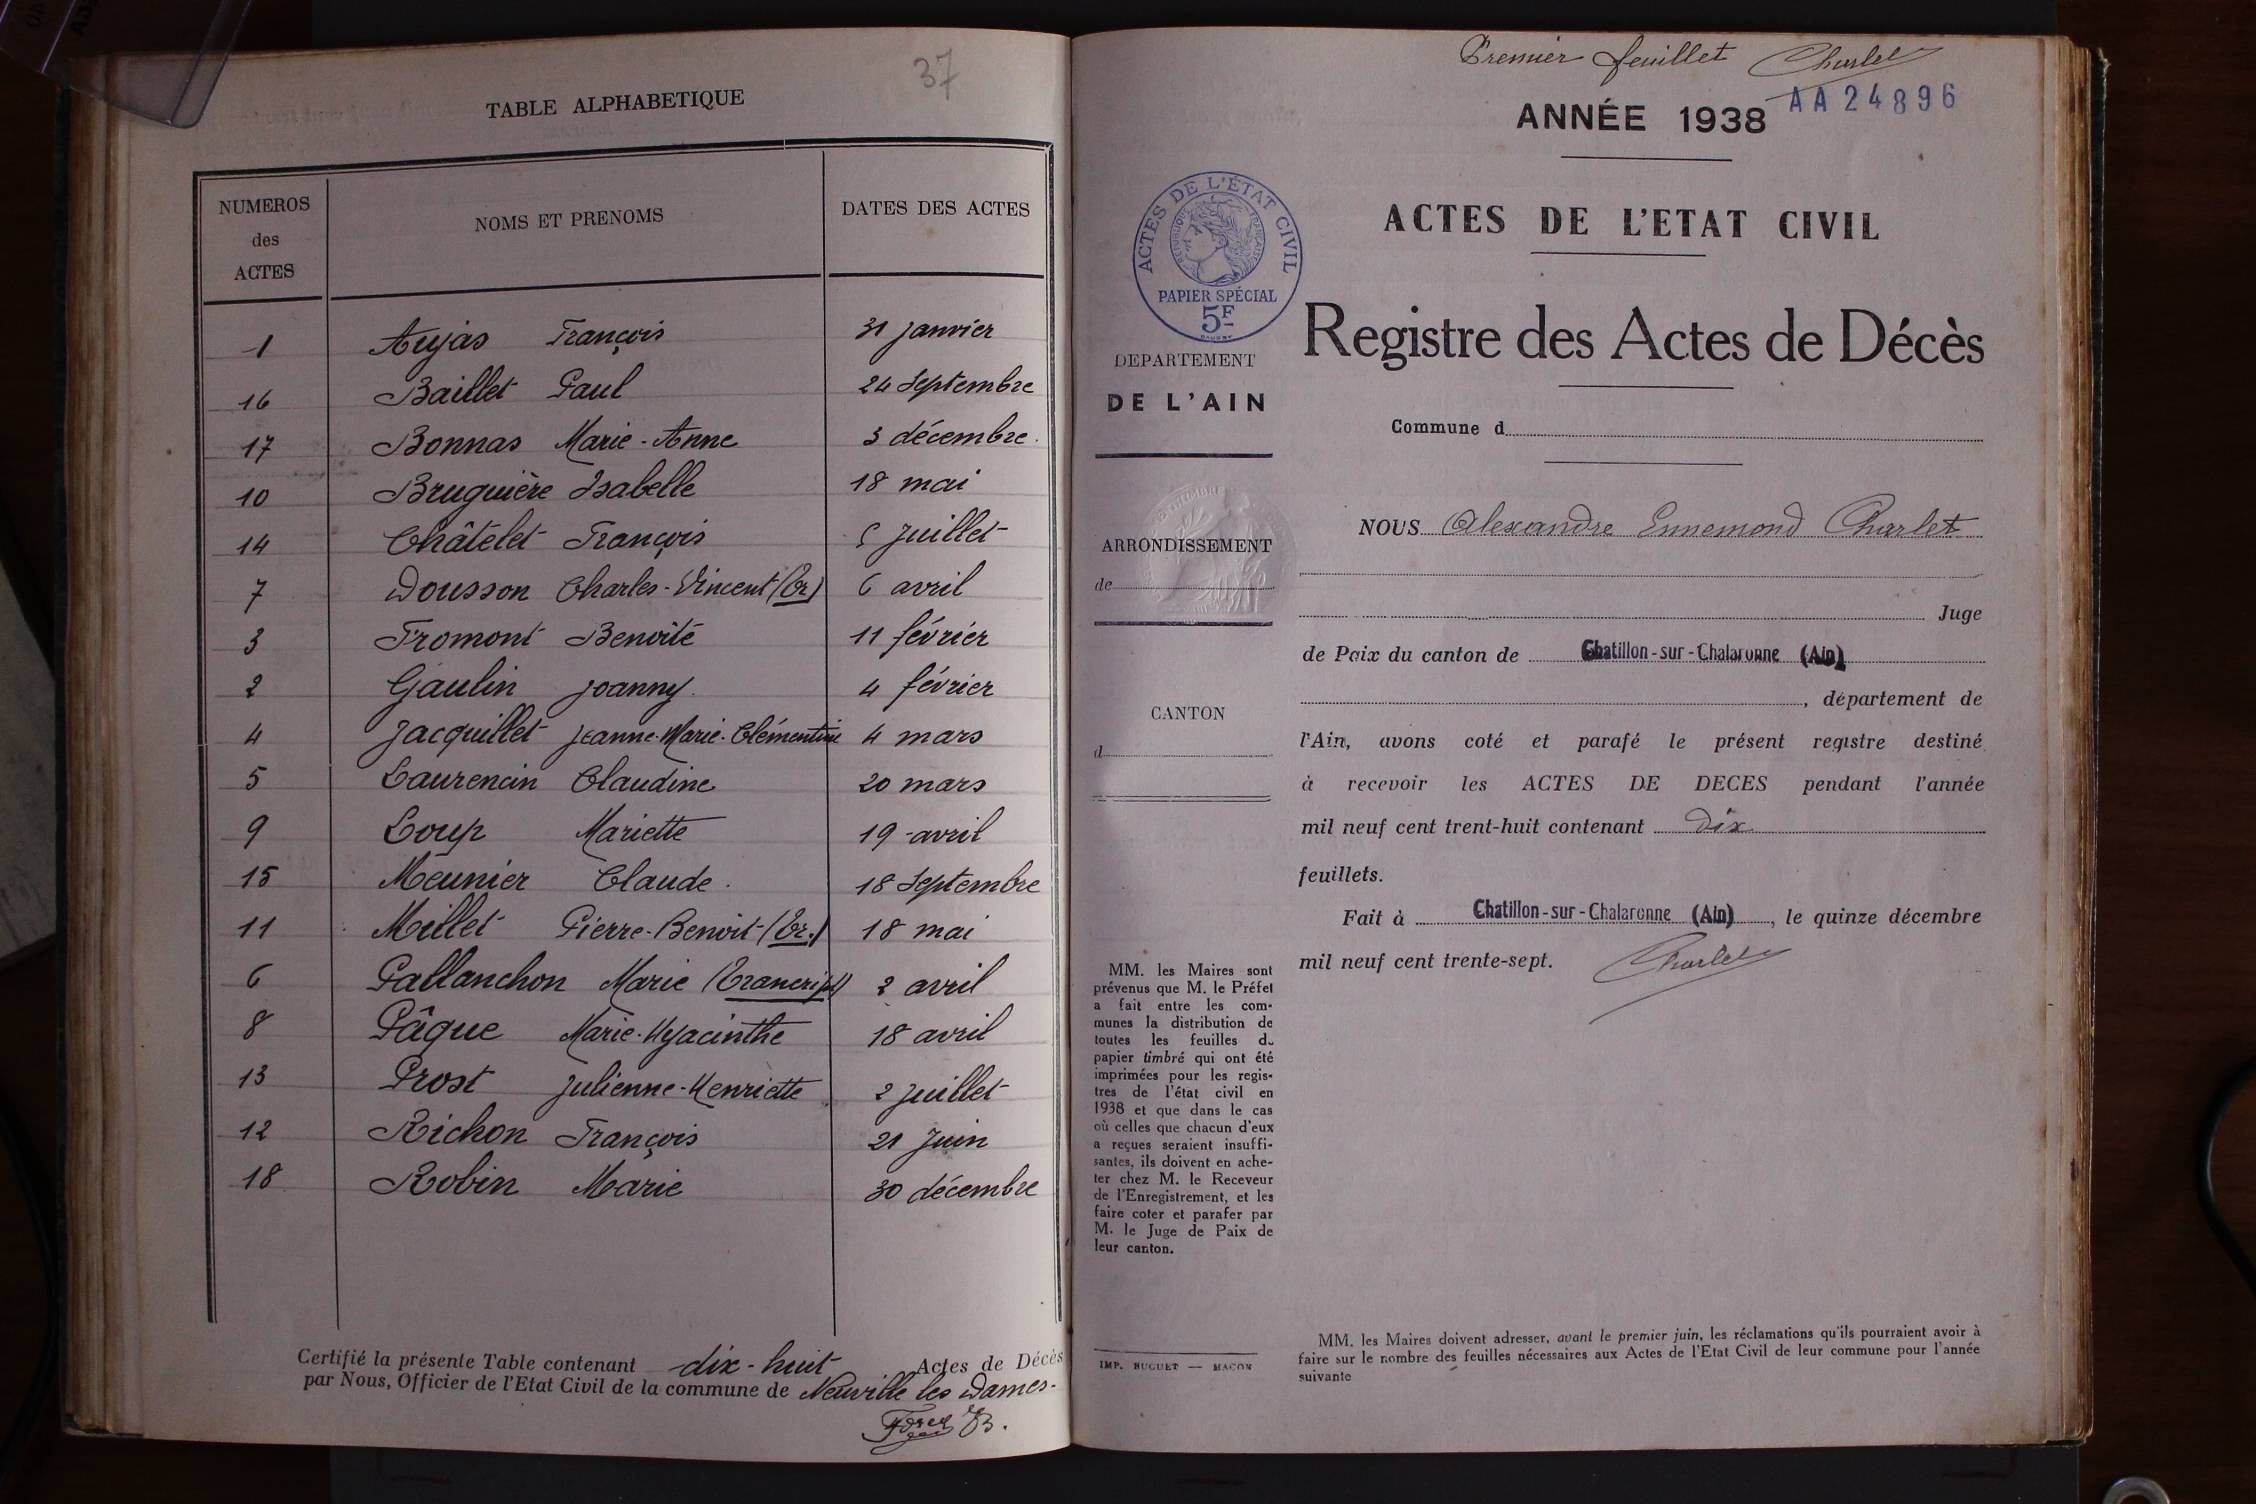 37
TABLE ALPHABETIQUE
NUMEROS des ACTES NOMS ET PRENOMS DATES DES ACTES
1 Aujas François 31 janvier
16 Baillet Paul 24 Septembre
17 Bonnas Marie-Anne 3 décembre.
10 Bruguière Isabelle 18 mai
14 Châtelet François 5 Juillet
7 Dousson Charles-Vincent (Tr) 6 avril
3 Fromont Benoîte 11 février
2 Gaulin Joanny. 4 février
4 Jacquillet Jeanne-Marie-Clémentine 4 mars
5 Laurencin Claudine 20 mars
9 Loup Mariette 19 avril
15 Meunier Claude. 18 Septembre
11 Millet Pierre-Benoit-(Tr.) 18 mai
6 Pallanchon Marie (Trancript) 2 avril
8 Pâque Marie-Hyacinthe 18 avril
13 Prost Julienne-Henriette 2 Juillet
12 Richon François 21 Juin
18 Robin Marie 30 décembre
Certifié la présente Table contenant dix-huit Actes de Décès
par Nous, Officier de l'Etat Civil de la commune de Neuville les Dames.
Premier feuillet Charlet
AA24896
ANNÉE 1938
ACTES DE L'ETAT CIVIL
ACTES DE L'ÉTAT CIVIL
RÉPUBLIQUE FRANÇAISE
PAPIER SPÉCIAL
5F
Registre des Actes de Décès
DEPARTEMENT
DE L'AIN
Commune d
ARRONDISSEMENT
de
CANTON
d
NOUS Alexandre Ennemond Charlet
Juge
de Paix du canton de Chatillon-sur-Chalaronne (Ain)
, département de
l'Ain, avons coté et parafé le présent registre destiné
à recevoir les ACTES DE DECES pendant l'année
mil neuf cent trent-huit contenant dix
feuillets.
Fait à Chatillon-sur-Chalaronne (Ain), le quinze décembre
mil neuf cent trente-sept. Charlet
MM. les Maires sont
prévenus que M. le Préfet
a fait entre les com-
munes la distribution de
toutes les feuilles de
papier timbré qui ont été
imprimées pour les regis-
tres de l'état civil en
1938 et que dans le cas
où celles que chacun d'eux
a reçues seraient insuffi-
santes, ils doivent en ache-
ter chez M. le Receveur
de l'Enregistrement, et les
faire coter et parafer par
M. le Juge de Paix de
leur canton.
IMP. BUGUET — MACON
MM. les Maires doivent adresser, avant le premier juin, les réclamations qu'ils pourraient avoir à
faire sur le nombre des feuilles nécessaires aux Actes de l'Etat Civil de leur commune pour l'année
suivante